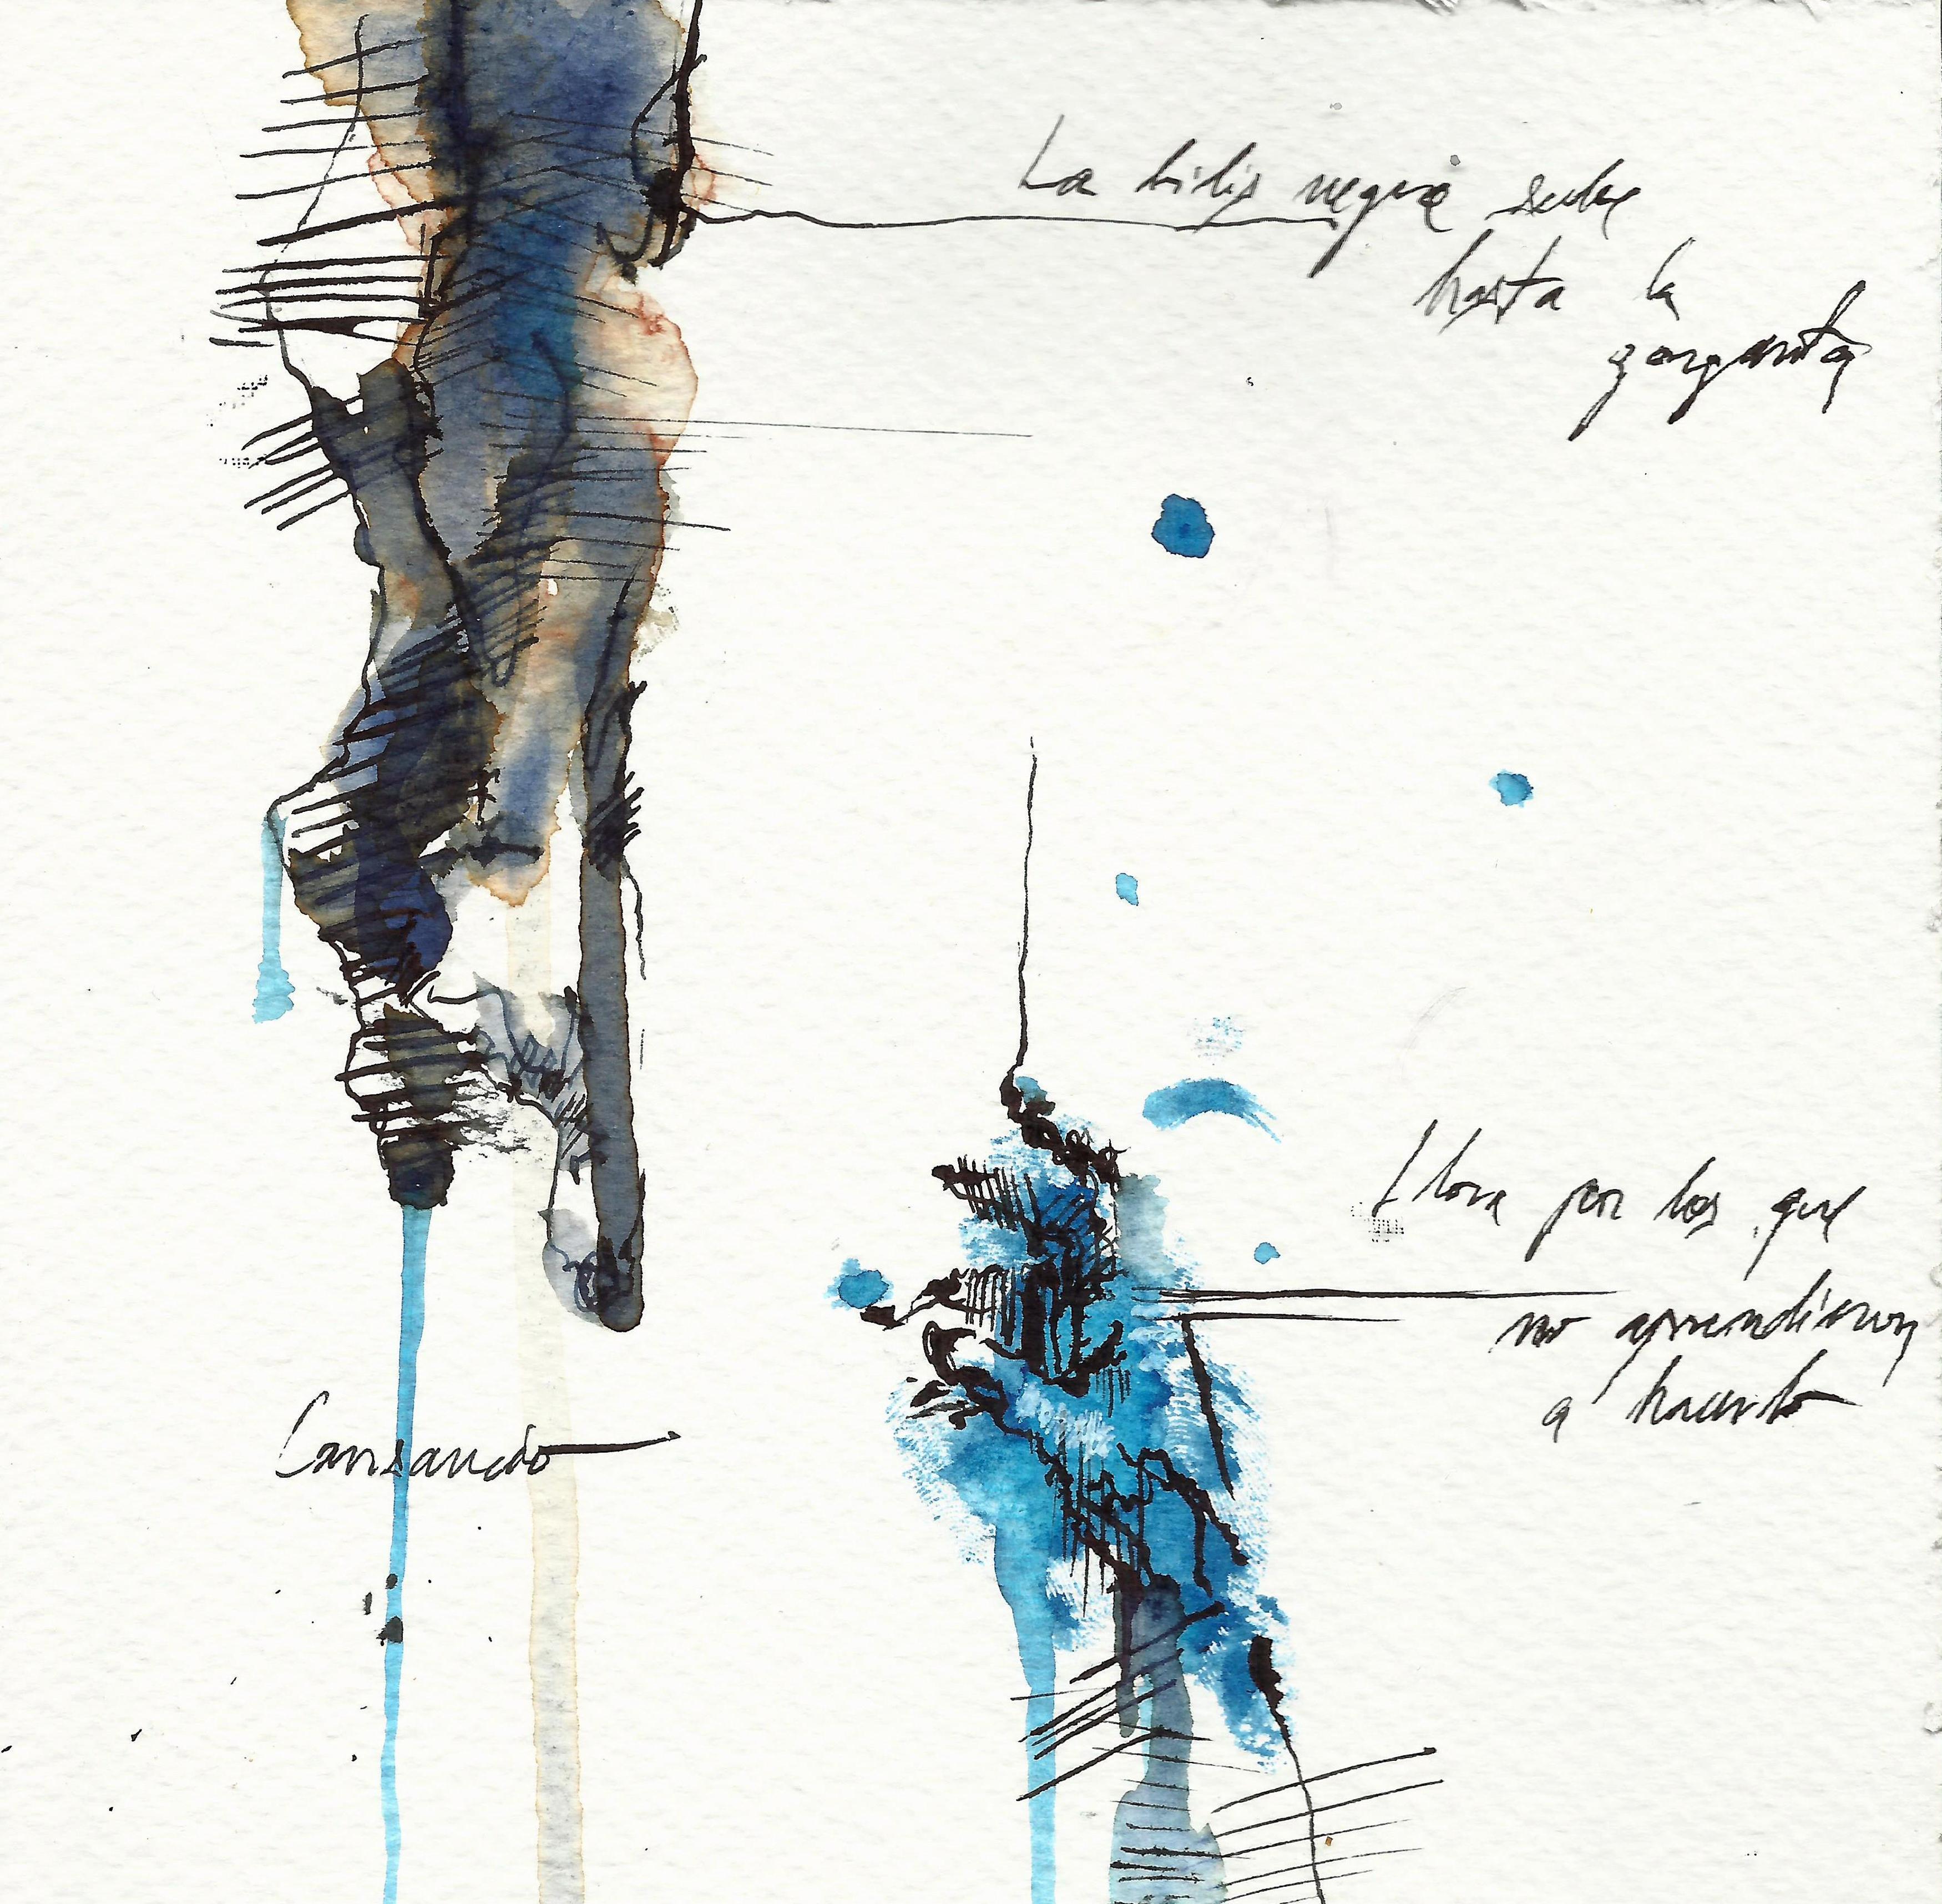 La bilis negra sube
hasta la
garganta
Llora por los que
no aprendieron
a hacerlo
Cansancio